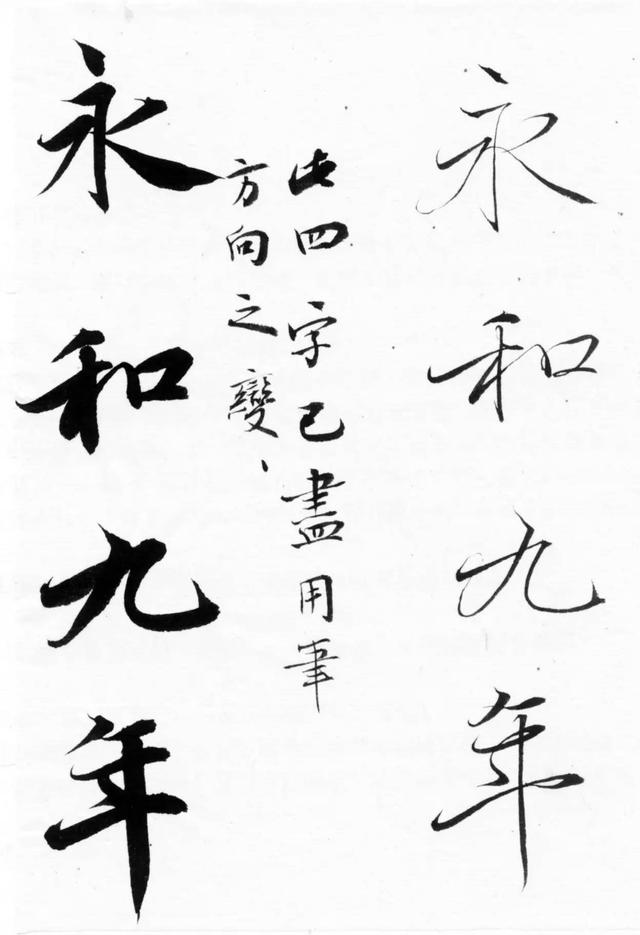 永和九年
此四字已盡用筆
方向之變、
永和九年